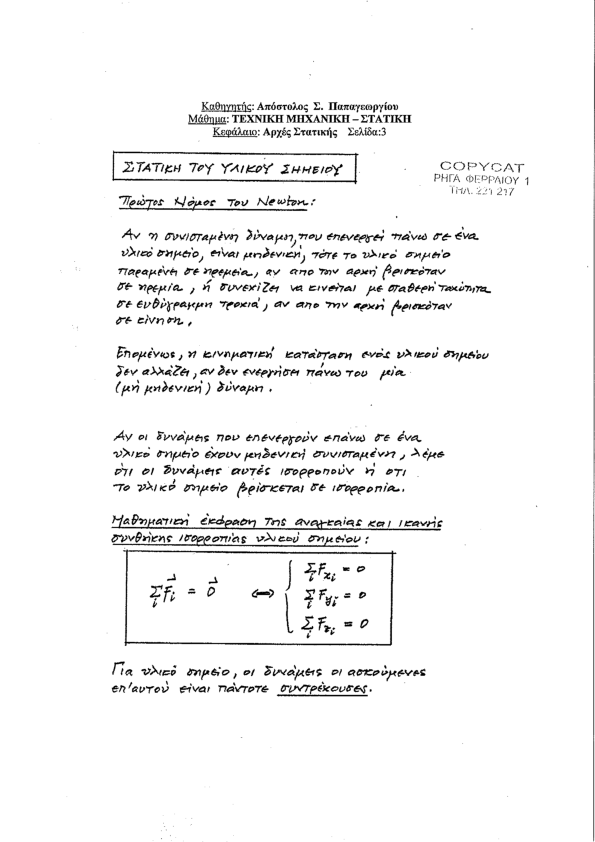 Καθηγητής: Απόστολος Σ. Παπαγεωργίου
Μάθημα: ΤΕΧΝΙΚΗ ΜΗΧΑΝΙΚΗ – ΣΤΑΤΙΚΗ
Κεφάλαιο: Αρχές Στατικής Σελίδα:3
ΣΤΑΤΙΚΗ ΤΟΥ ΥΛΙΚΟΥ ΣΗΜΕΙΟΥ
COPYCAT
ΡΗΓΑ ΦΕΡΡΑΙΟΥ 1
ΤΗΛ. 221 217
Πρώτος Νόμος του Newton:
Αν η συνισταμένη δύναμη, που επενεργεί πάνω σε ένα
υλικό σημείο, είναι μηδενική, τότε το υλικό σημείο
παραμένει σε ηρεμεία, αν απο την αρχή βρισκόταν
σε ηρεμία, ή συνεχίζει να κινείται με σταθερή ταχύτητα
σε ευθύγραμμη τροχιά, αν απο την αρχή βρισκόταν
σε κίνηση.
Επομένως, η κινηματική κατάσταση ενός υλικού σημείου
δεν αλλάζει, αν δεν ενεργήσει πάνω του μία
(μή μηδενική) δύναμη.
Αν οι δυνάμεις που επενεργούν επάνω σε ένα
υλικό σημείο έχουν μηδενική συνισταμένη, λέμε
ότι οι δυνάμεις αυτές ισορροπούν ή οτι
το υλικό σημείο βρίσκεται σε ισορροπία.
Μαθηματική έκφραση της αναγκαίας και ικανής
συνθήκης ισορροπίας υλικού σημείου:
Σ_i F⃗_i = 0⃗ ⟺ { Σ_i F_{xi} = 0
Σ_i F_{yi} = 0
Σ_i F_{zi} = 0
Για υλικό σημείο, οι δυνάμεις οι ασκούμενες
επ'αυτού είναι πάντοτε συντρέχουσες.